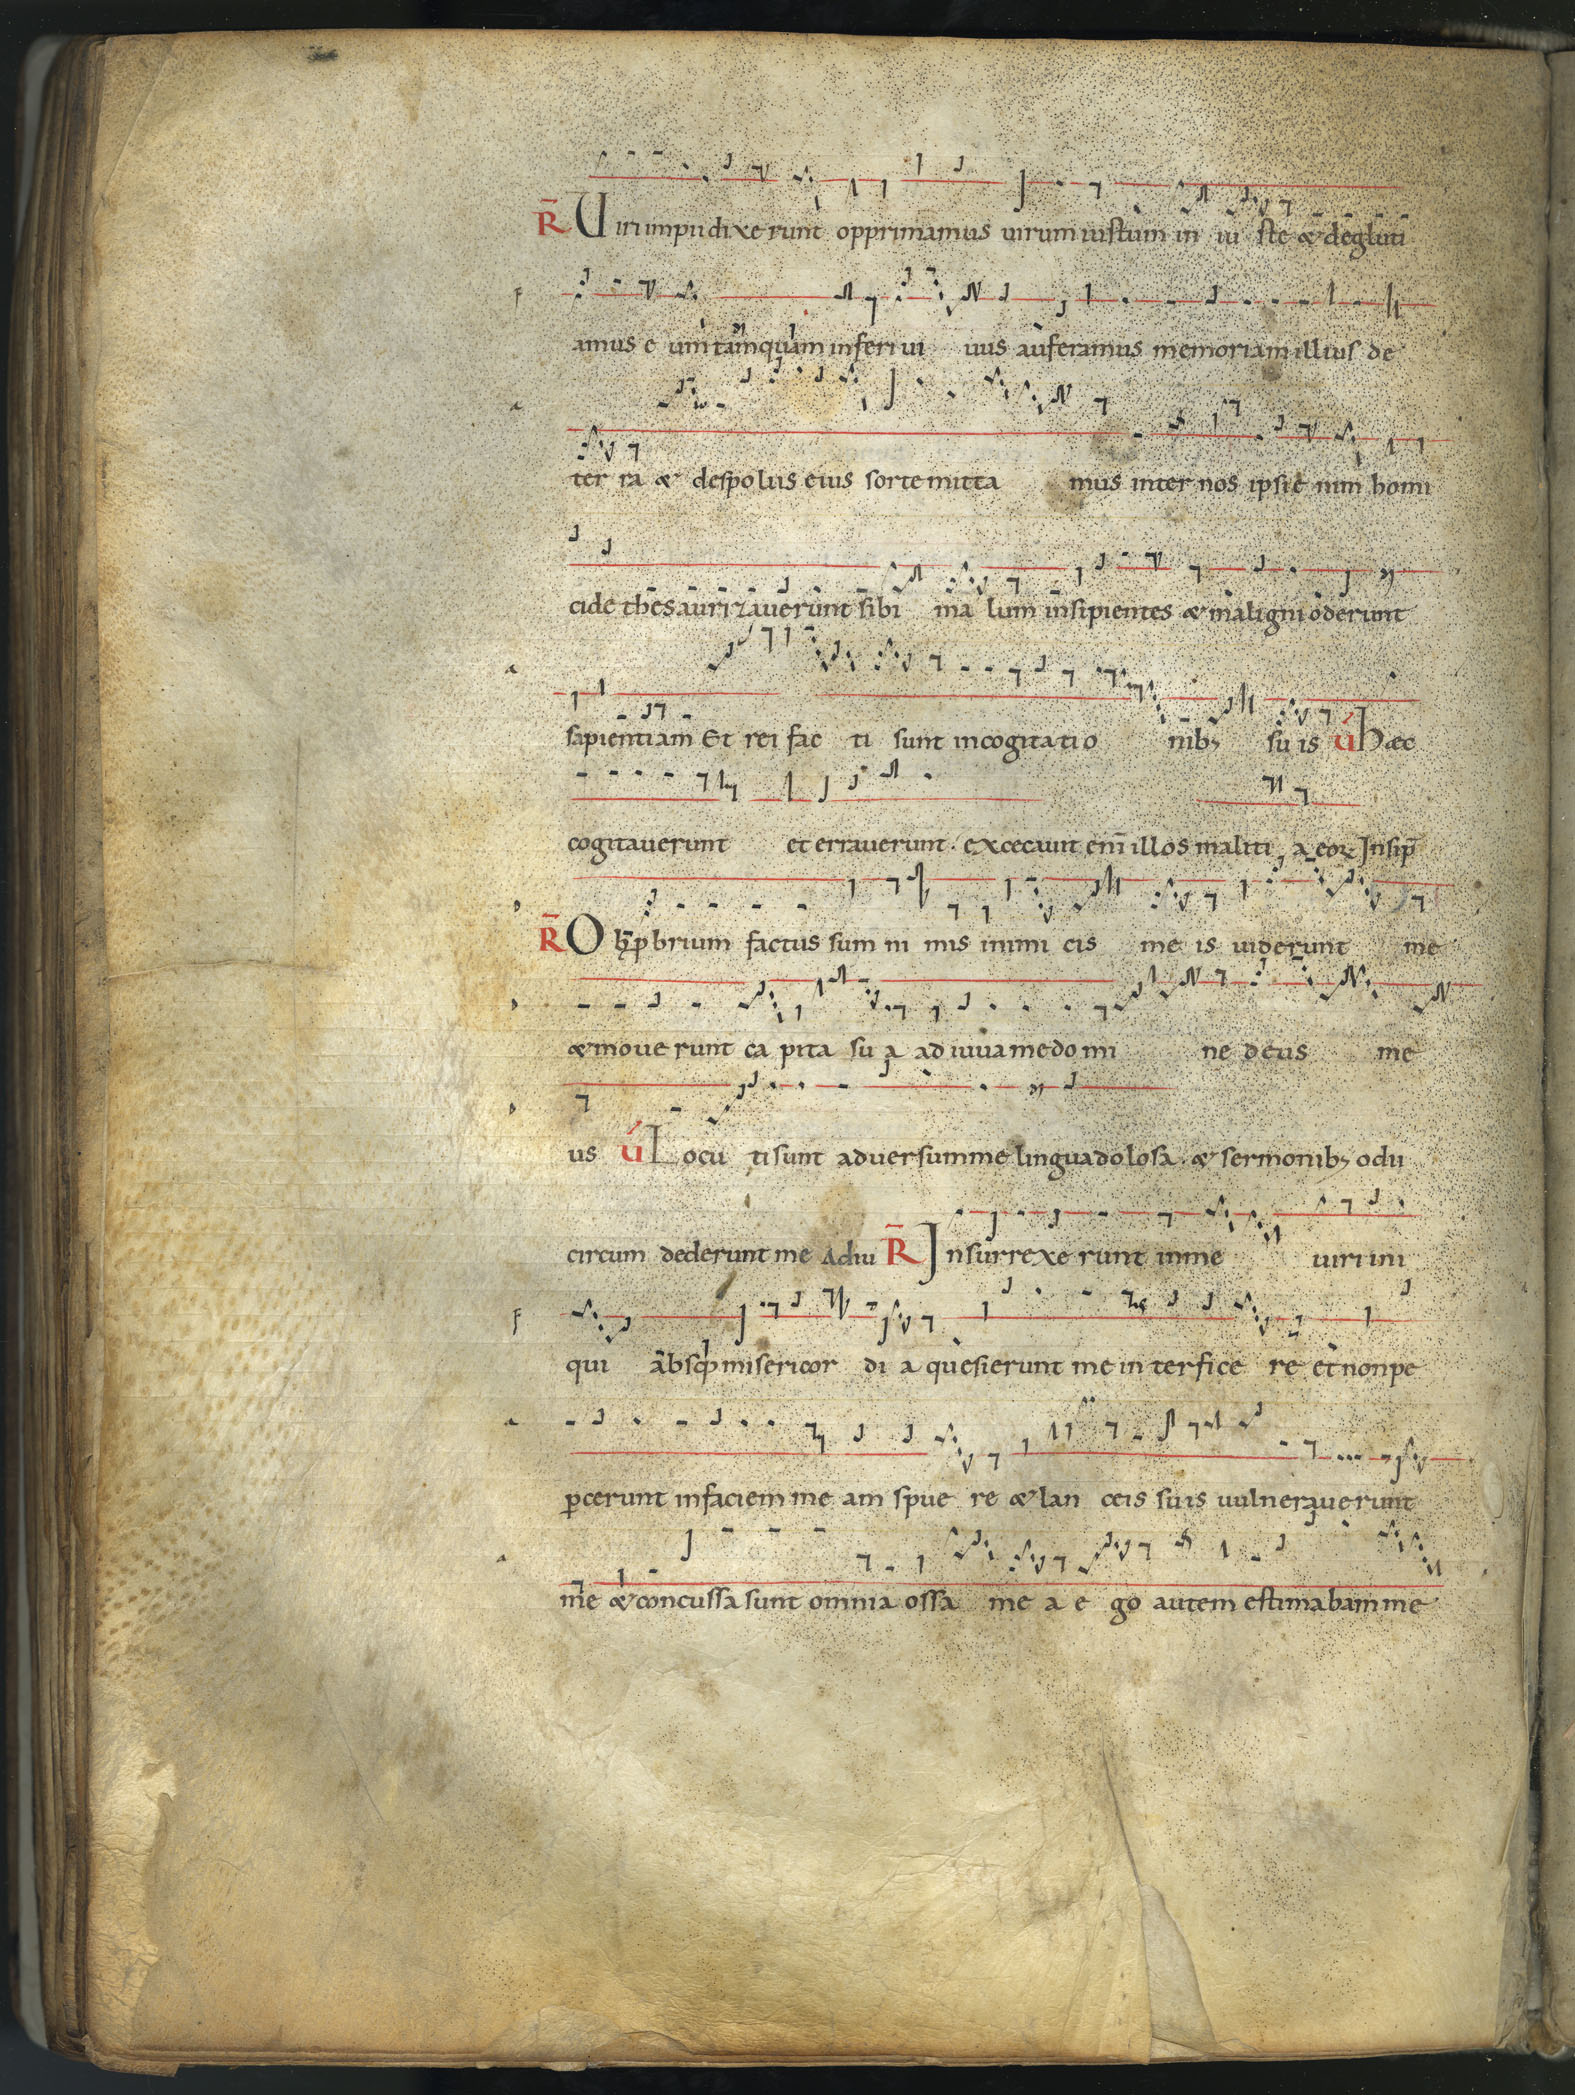 R̄ Uiri impii dixerunt opprimamus uirum iustum iniuste & degluti
amus eum tamquam inferi uiuus auferamus memoriam illius de
terra & de spoliis eius sorte mittamus inter nos ipsi enim homi
cide thesaurizauerunt sibi malum insipientes & maligni oderunt
sapientiam Et rei facti sunt in cogitationibꝫ suis V́ Haec
cogitauerunt et errauerunt. excecauit eni̅ illos malitia eoꝝ Insip̄
R̄ Obꝓbrium factus sum nimis inimicis meis uiderunt me
& mouerunt capita sua adiuua me domine deus me
us V́ Locuti sunt aduersum me lingua dolosa. & sermonibꝫ odii
circum dederunt me Adiu R̄ Insurrexerunt in me uiri ini
qui absqꝫ misericordia quesierunt me interficere et non pe
ꝑcerunt in faciem meam spuere & lanceis suis uulnerauerunt
me & concussa sunt omnia ossa mea ego autem estimabam me